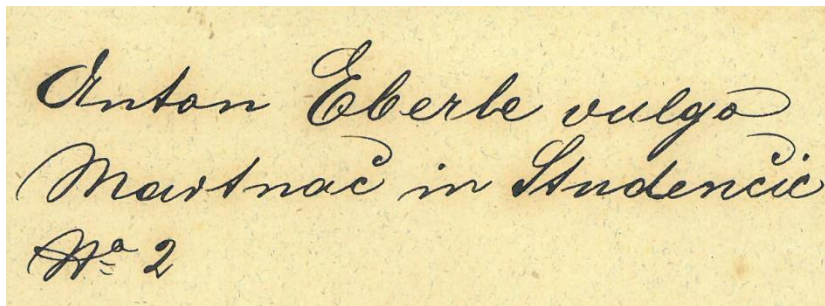 Anton Eberle vulgo
Martnač in Studenčič
Nº 2